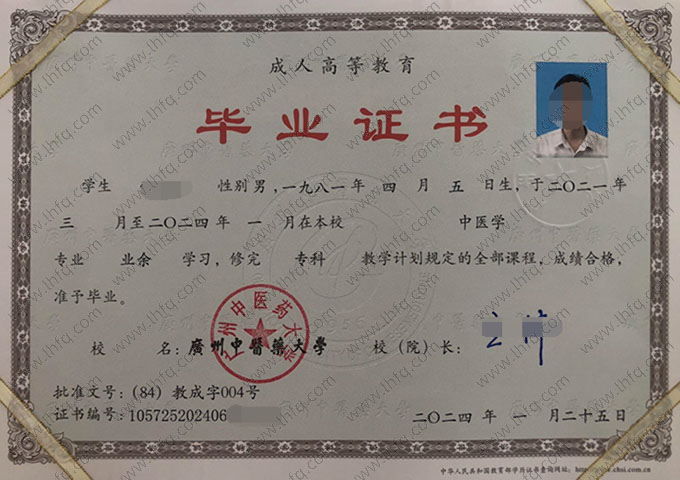 成人高等教育
毕业证书
学生 性别 男，一九八一年 四 月 五 日生，于二〇二一年
三 月至二〇二四年 一 月在本校 中医学
专业 业余 学习，修完 专科 教学计划规定的全部课程，成绩合格，
准予毕业。
广州中医药大学
校 名：廣州中醫藥大學 校（院）长：
批准文号：（84）教成字004号
证书编号：105725202406
二〇二四年 一 月二十五日
中华人民共和国教育部学历证书查询网址：http://www.chsi.com.cn
www.lhfq.com